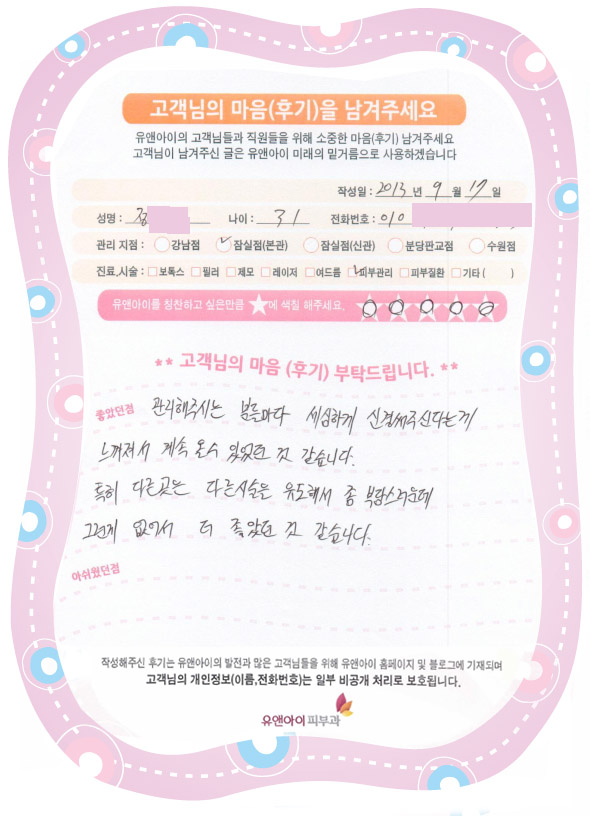 고객님의 마음(후기)을 남겨주세요
유앤아이의 고객님들과 직원들을 위해 소중한 마음(후기) 남겨주세요
고객님이 남겨주신 글은 유앤아이 미래의 밑거름으로 사용하겠습니다
작성일 : 2013 년 9 월 17 일
성명 : 나이 : 31 전화번호 : 010
관리 지점 : 강남점 잠실점(본관) 잠실점(신관) 분당판교점 수원점
진료,시술 : 보톡스 필러 제모 레이저 여드름 피부관리 피부질환 기타 ( )
유앤아이를 칭찬하고 싶은만큼 ★에 색칠 해주세요.
** 고객님의 마음 (후기) 부탁드립니다. **
좋았던점 관리해주시는 분들마다 세심하게 신경써주신다는게
느껴져서 계속 올수 있었던 것 같습니다.
특히 다른곳는 다른시술은 유도해서 좀 부담스러운데
그런게 없어서 더 좋았던 것 같습니다.
아쉬웠던점
작성해주신 후기는 유앤아이의 발전과 많은 고객님들을 위해 유앤아이 홈페이지 및 블로그에 기재되며
고객님의 개인정보(이름,전화번호)는 일부 비공개 처리로 보호됩니다.
유앤아이피부과